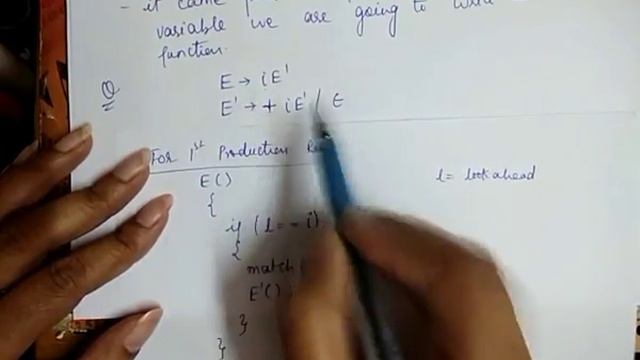 - it came
variable we are going to
function.
Q E → iE'
E' → + iE' / ϵ
For 1st Production
E() l = look ahead
{
if (l == i)
{
match
E'() ;
}
}